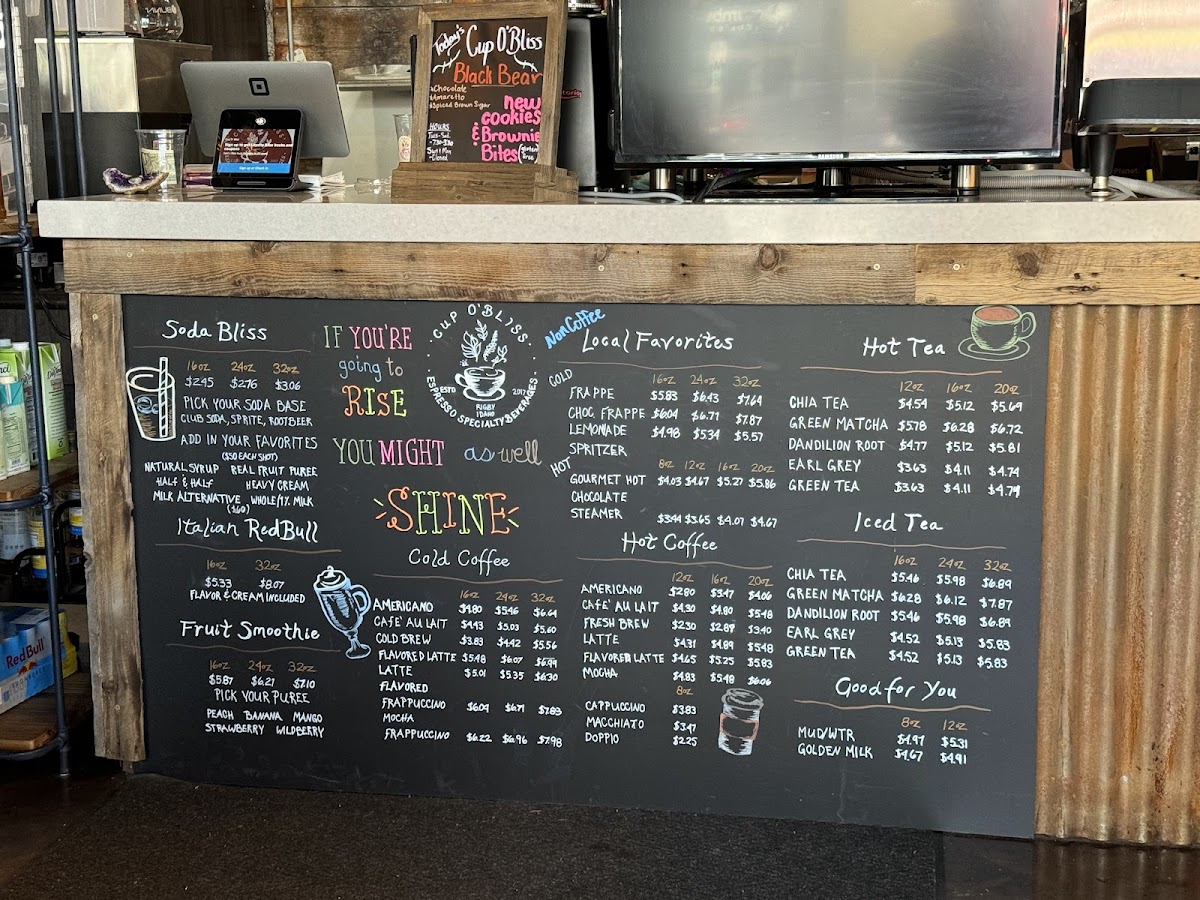 Today's
Cup O'Bliss
Black Bear
Chocolate
Amaretto
Spiced Brown Sugar
new
cookies
& Brownie
Bites
HOURS
Tues-Sat
Sun & Mon
-Closed
SAMSUNG
RedBull
Soda Bliss
16oz 24oz 32oz
$2.45 $2.76 $3.06
PICK YOUR SODA BASE
CLUB SODA, SPRITE, ROOTBEER
ADD IN YOUR FAVORITES
($.50 EACH SHOT)
NATURAL SYRUP REAL FRUIT PUREE
HALF & HALF HEAVY CREAM
MILK ALTERNATIVE WHOLE/1% MILK
Italian RedBull
16oz 32oz
$5.33 $8.07
FLAVOR & CREAM INCLUDED
Fruit Smoothie
16oz 24oz 32oz
$5.87 $6.21 $7.10
PICK YOUR PUREE
PEACH BANANA MANGO
STRAWBERRY WILDBERRY
IF YOU'RE
going to
RISE
YOU MIGHT as well
SHINE
CUP O'BLISS
ESTD 2017
RIGBY
IDAHO
ESPRESSO SPECIALTY BEVERAGES
Cold Coffee
16oz 24oz 32oz
AMERICANO $4.80 $5.46 $6.64
CAFE' AU LAIT $4.43 $5.03 $5.60
COLD BREW $3.83 $4.42 $5.56
FLAVORED LATTE $5.48 $6.07 $6.99
LATTE $5.01 $5.35 $6.30
FLAVORED
FRAPPUCCINO $6.04 $6.71 $7.83
MOCHA
FRAPPUCCINO $6.22 $6.96 $7.98
NonCoffee
Local Favorites
COLD
16oz 24oz 32oz
FRAPPE $5.83 $6.43 $7.64
CHOC. FRAPPE $6.04 $6.71 $7.87
LEMONADE $4.98 $5.34 $5.57
SPRITZER
HOT
8oz 12oz 16oz 20oz
GOURMET HOT $4.03 $4.67 $5.27 $5.86
CHOCOLATE
STEAMER $3.44 $3.65 $4.07 $4.67
Hot Coffee
12oz 16oz 20oz
AMERICANO $2.80 $3.47 $4.06
CAFE' AU LAIT $4.30 $4.80 $5.48
FRESH BREW $2.30 $2.87 $3.40
LATTE $4.31 $4.89 $5.48
FLAVORED LATTE $4.65 $5.25 $5.83
MOCHA $4.83 $5.48 $6.06
8oz
CAPPUCCINO $3.83
MACCHIATO $3.47
DOPPIO $2.25
Hot Tea
12oz 16oz 20oz
CHIA TEA $4.54 $5.12 $5.69
GREEN MATCHA $5.78 $6.28 $6.72
DANDILION ROOT $4.77 $5.12 $5.81
EARL GREY $3.63 $4.11 $4.74
GREEN TEA $3.63 $4.11 $4.74
Iced Tea
16oz 24oz 32oz
CHIA TEA $5.46 $5.98 $6.89
GREEN MATCHA $6.28 $6.12 $7.87
DANDILION ROOT $5.46 $5.98 $6.89
EARL GREY $4.52 $5.13 $5.83
GREEN TEA $4.52 $5.13 $5.83
Good for You
8oz 12oz
MUD/WTR $4.97 $5.31
GOLDEN MILK $4.67 $4.91